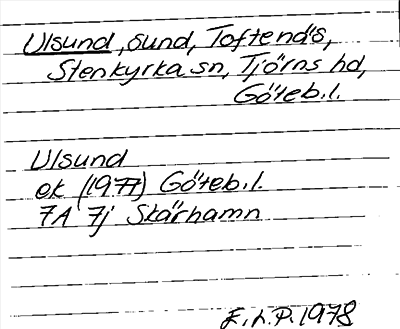 Ulsund, sund, Toftenäs,
Stenkyrka sn, Tjörns hd,
Göteb.l.
Ulsund
ek (1977) Göteb.l.
7A 7j Skärhamn
E.L.P. 1978